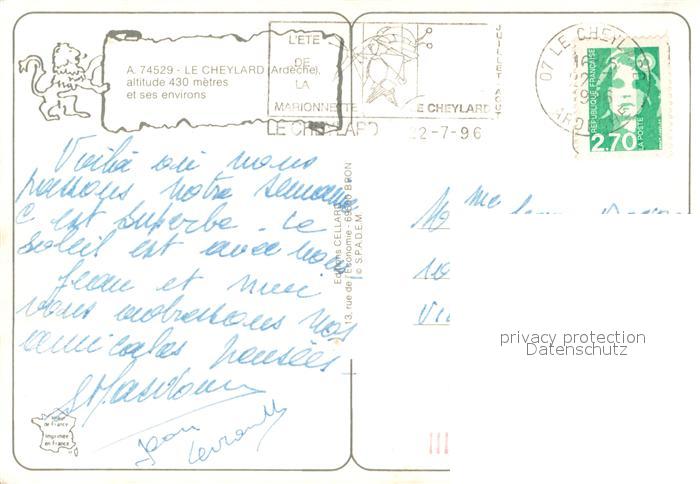 A. 74529 - LE CHEYLARD (Ardèche),
altitude 430 mètres
et ses environs
L'ÉTÉ
DE
LA
MARIONNETTE
LE CHEYLARD
JUILLET AOUT
LE CHEYLARD 22-7-96
07 LE CHEYLARD
ARDECHE
REPUBLIQUE FRANÇAISE
2,70
LA POSTE
Voilà où nous
passons notre semaine
c'est superbe. Le
soleil est avec nous
Jean et moi
vous adressons nos
amicales pensées
Jean
Editions CELLARD
13, rue de l'Économie - 69500 BRON
© S.P.A.D.E.M.
Imprimée
en France
Mme
privacy protection
Datenschutz